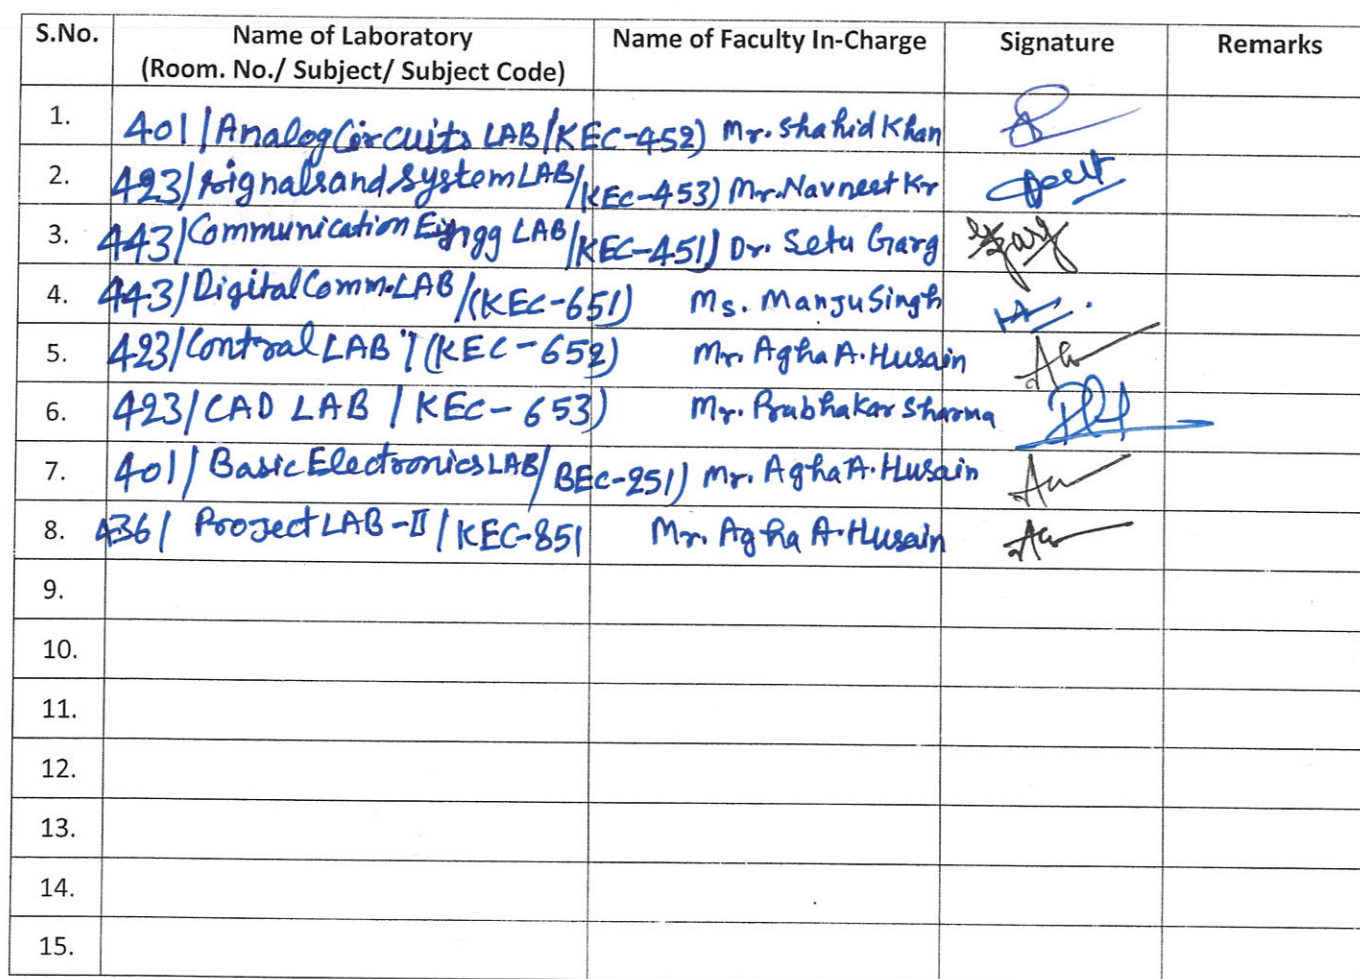 S.No. Name of Laboratory (Room. No./ Subject/ Subject Code) Name of Faculty In-Charge Signature Remarks
1. 401/Analog Circuits LAB/KEC-452) Mr. Shahid Khan
2. 423/signals and System LAB/KEC-453) Mr. Navneet Kr
3. 443/Communication Engg LAB/KEC-451) Dr. Setu Garg
4. 443/Digital Comm. LAB/(KEC-651) Ms. Manju Singh
5. 423/Control LAB /(KEC-652) Mr. Agha A. Husain
6. 423/CAD LAB / KEC-653) Mr. Prabhakar Sharma
7. 401/Basic Electronics LAB/BEC-251) Mr. Agha A. Husain
8. 436/ Project LAB-II/KEC-851 Mr. Agha A. Husain
9.
10.
11.
12.
13.
14.
15.